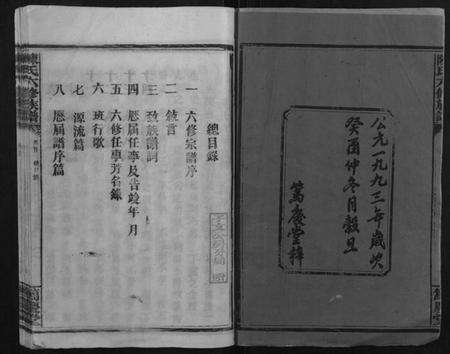 公元一九九三年歲次
癸酉仲冬月穀旦
篤慶堂梓
總目錄
一 六修宗譜序
二 敍言
三 致族譜詞
四 歷屆任事及告竣年月
五 六修任事芳名錄
六 班行歌
七 源流篇
八 歷屆譜序篇
陳氏六修族譜